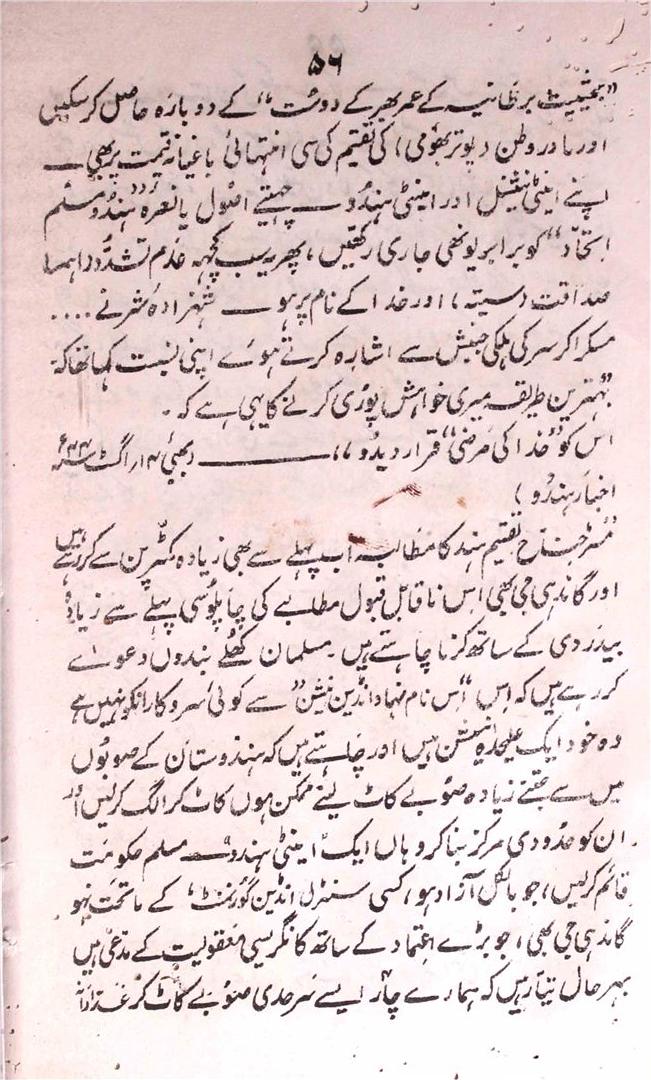 ۵۶
”بحیثیت برطانیہ کے عمر بھر کے دوست“ کے دوبارہ حاصل کرسکیں
اور مادر وطن (پوتر بھومی) کی تقسیم کی سی انتہائی باغیانہ قیمت پر بھی ــــ
اپنے اینٹی نیشنل اور اینٹی ہندو ــــ چہیتے اصول یا نعرہ ”ہندو مسلم
اتحاد“ کو برابر یونہی جاری رکھیں، پھر یہ سب کچھ عدم تشدد (اہمسا
صداقت (ستیہ) اور خدا کے نام پر ہو ــــ شہزادہ شر نے ....
مسکراکر سر کی ہلکی جنبش سے اشارہ کرتے ہوئے اپنی نسبت کہا تھا کہ
”بہترین طریقہ میری خواہش پوری کرنے کا یہی ہے کہ ۔
اس کو ”خدا کی مرضی“ قرار دیدو،، ــــــــــ (بمبئی ۱۴ اگست سنہ ۴۴ء
اخبار ہندو)
”مسٹر جناح تقسیم ہند کا مطالبہ اب پہلے سے بھی زیادہ کٹرپن سے کررہے ہیں
اور گاندہی جی بھی اس ناقابل قبول مطالبے کی چاپلوسی پہلے سے زیادہ
بیدردی کے ساتھ کرنا چاہتے ہیں ۔ مسلمان کھلے بندوں دعوے
کررہے ہیں کہ اس ”اس نام نہاد انڈین نیشن“ سے کوئی سروکار انکو نہیں ہے
وہ خود ایک علیحدہ نیشن ہیں اور چاہتے ہیں کہ ہندوستان کے صوبوں
میں سے جتنے زیادہ صوبے کاٹ لینے ممکن ہوں کاٹ کر الگ کرلیں اور
ان کو حدودی مرکز بنا کر وہاں ایک اینٹی ہندو ــــ مسلم حکومت
قائم کرلیں، جو بالکل آزاد ہو، کسی سنٹرل انڈین گورنمنٹ، کے ماتحت نہو
گاندہی جی بھی، جو بڑے اعتماد کے ساتھ کانگریسی معقولیت کے مدعی ہیں
بہر حال تیار ہیں کہ ہمارے چار ایسے سرحدی صوبے کاٹ کر غدارانہ